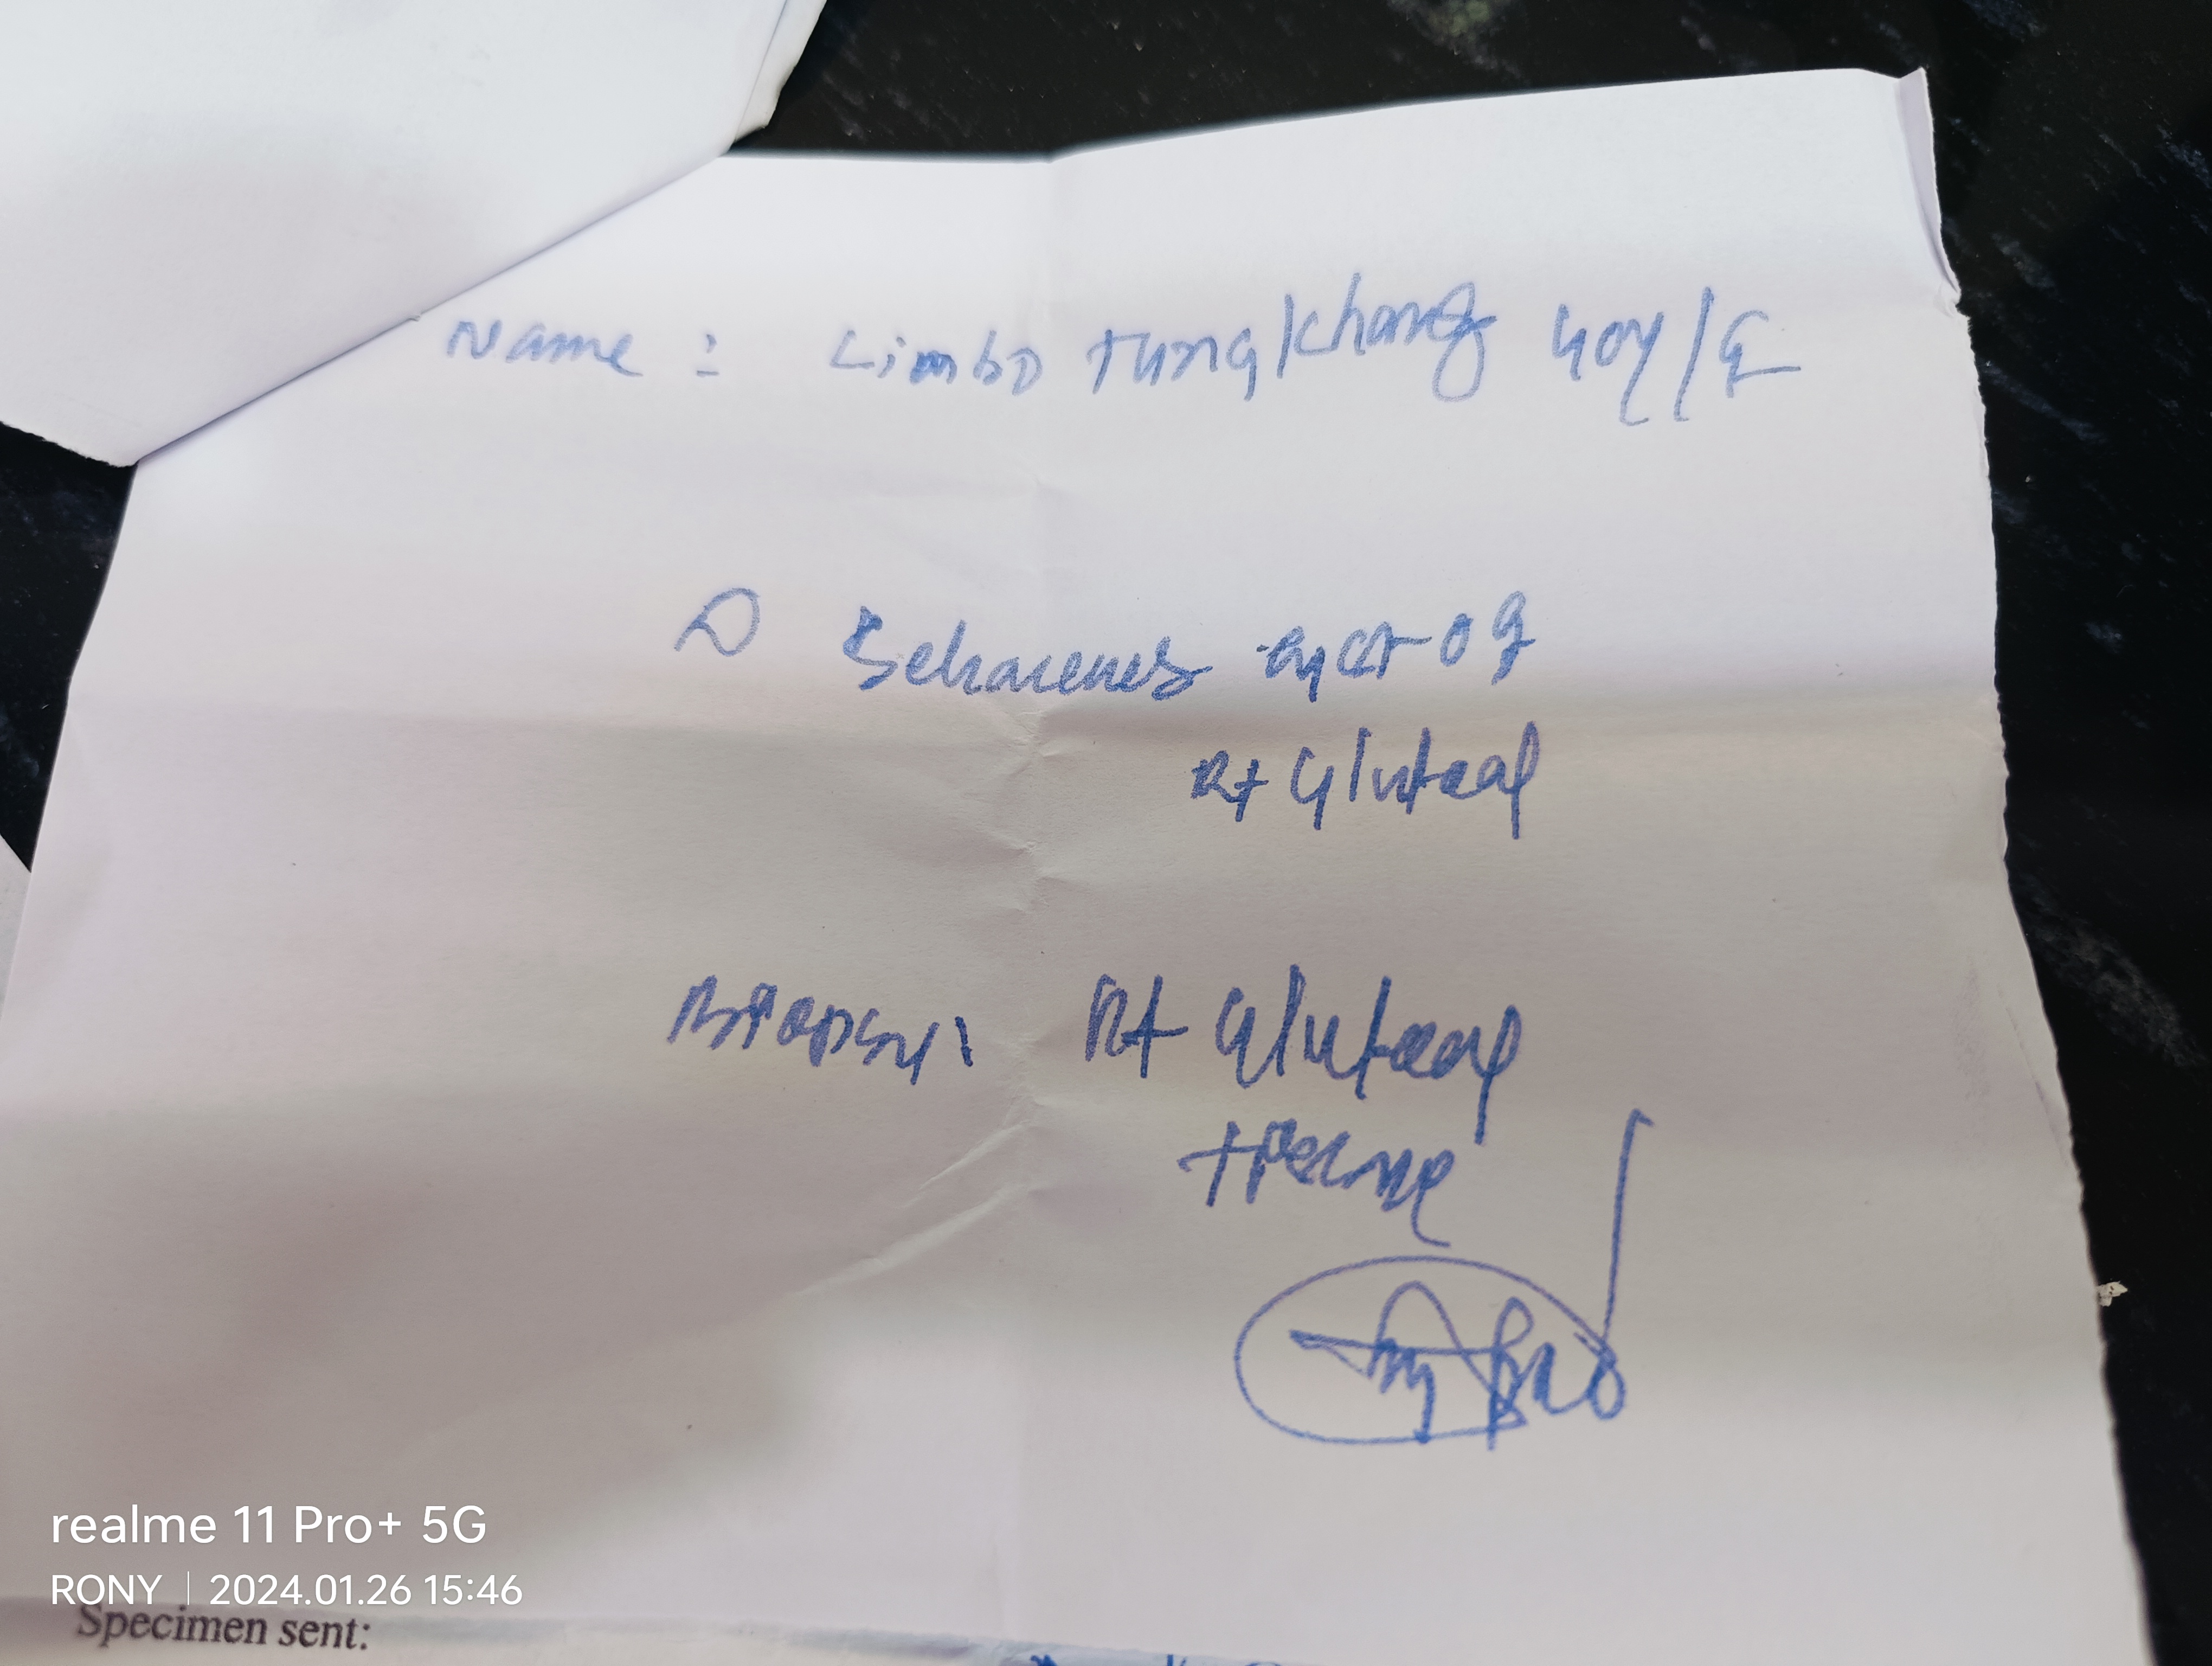 Name : Limbo Tungkhang 40y/F
D Sebaceous cyst of
Rt Gluteal
Biopsy: Rt Gluteal
realme 11 Pro+ 5G
RONY | 2024.01.26 15:46
Specimen sent: